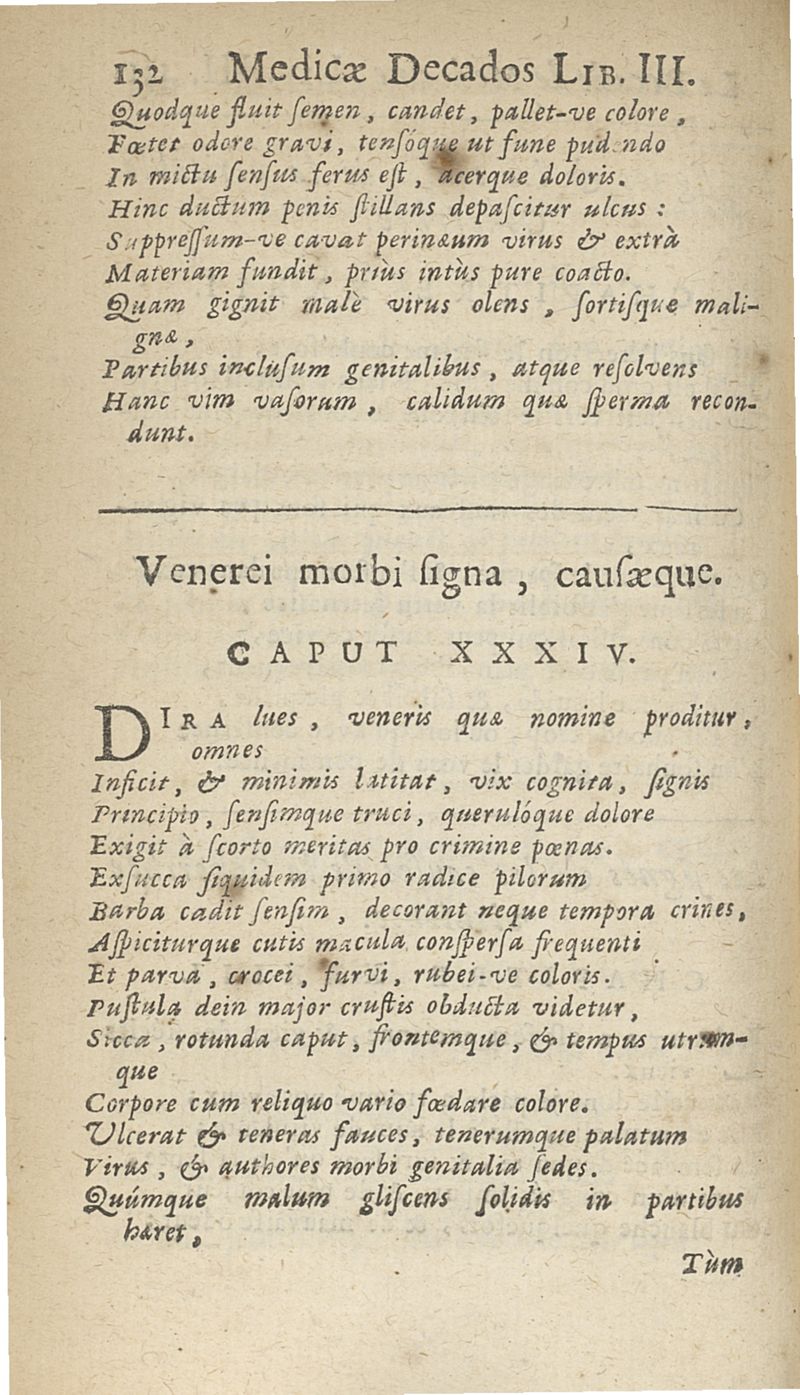 132 Medicæ Decados LIB. III.
Quodque fluit ſemen, candet, pallet-ve colore,
Fœtet odore gravi, tenſóque ut fune pudendo
In mictu ſenſus ferus eſt, acerque doloris.
Hinc ductum penis ſtillans depaſcitur ulcus:
Suppreſſum-ve cavat perinæum virus & extrà
Materiam fundit, priùs intùs pure coacto.
Quam gignit malè virus olens, ſortiſque mali-
gnæ,
Partibus incluſum genitalibus, atque reſolvens
Hanc vim vaſorum, calidum quæ ſperma recon-
dunt.
Venerei morbi ſigna, cauſæque.
CAPUT XXXIV.
DIRA lues, veneris quæ nomine proditur,
omnes
Inficit, & minimis latitat, vix cognita, ſignis
Principio, ſenſimque truci, querulóque dolore
Exigit à ſcorto meritas pro crimine pœnas.
Exſucca ſiquidem primo radice pilorum
Barba cadit ſenſim, decorant neque tempora crines,
Aſpiciturque cutis macula conſperſa frequenti
Et parvâ, crocei, furvi, rubei-ve coloris.
Puſtula dein major cruſtis obducta videtur,
Sicca, rotunda caput, frontemque, & tempus utrum-
que
Corpore cum reliquo vario fœdare colore.
Ulcerat & teneras fauces, tenerumque palatum
Virus, & authores morbi genitalia ſedes.
Quúmque malum gliſcens ſolidis in partibus
hæret,
Tùm